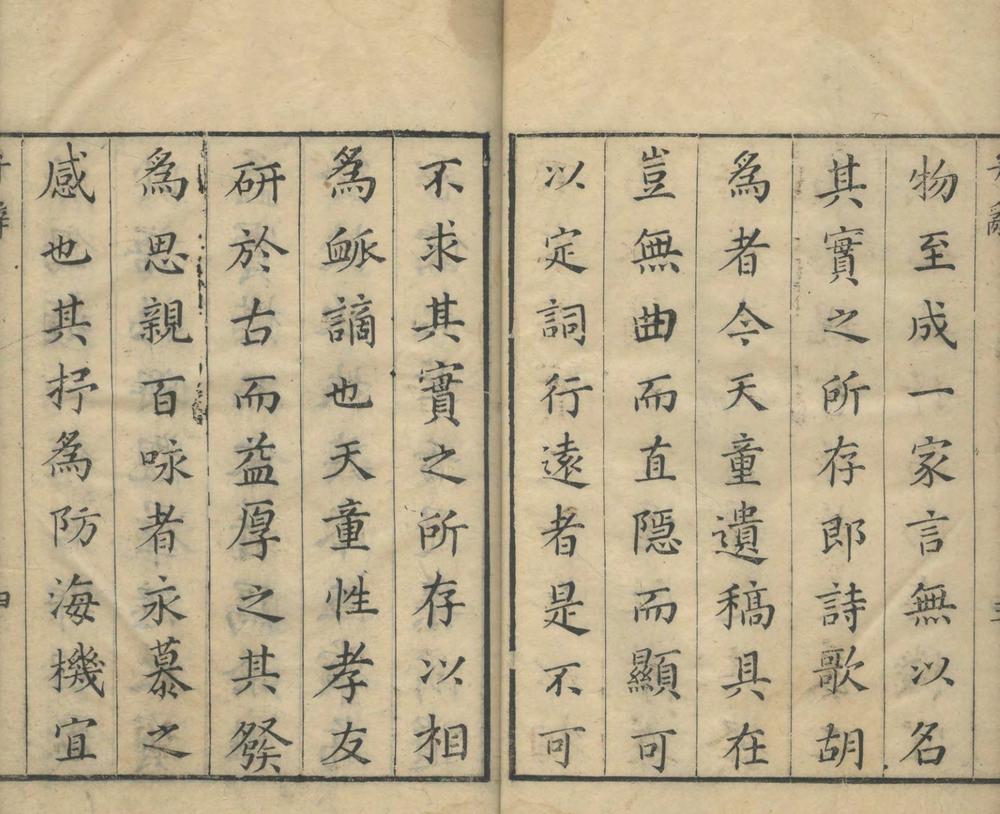 物至成一家言無以名
其實之所存郎詩歌胡
為者今天童遺稿具在
豈無曲而直隱而顯可
以定詞行遠者是不可
不求其實之所存以相
為衇謫也天童性孝友
研於古而益厚之其發
為思親百咏者永慕之
感也其抒為防海機宜